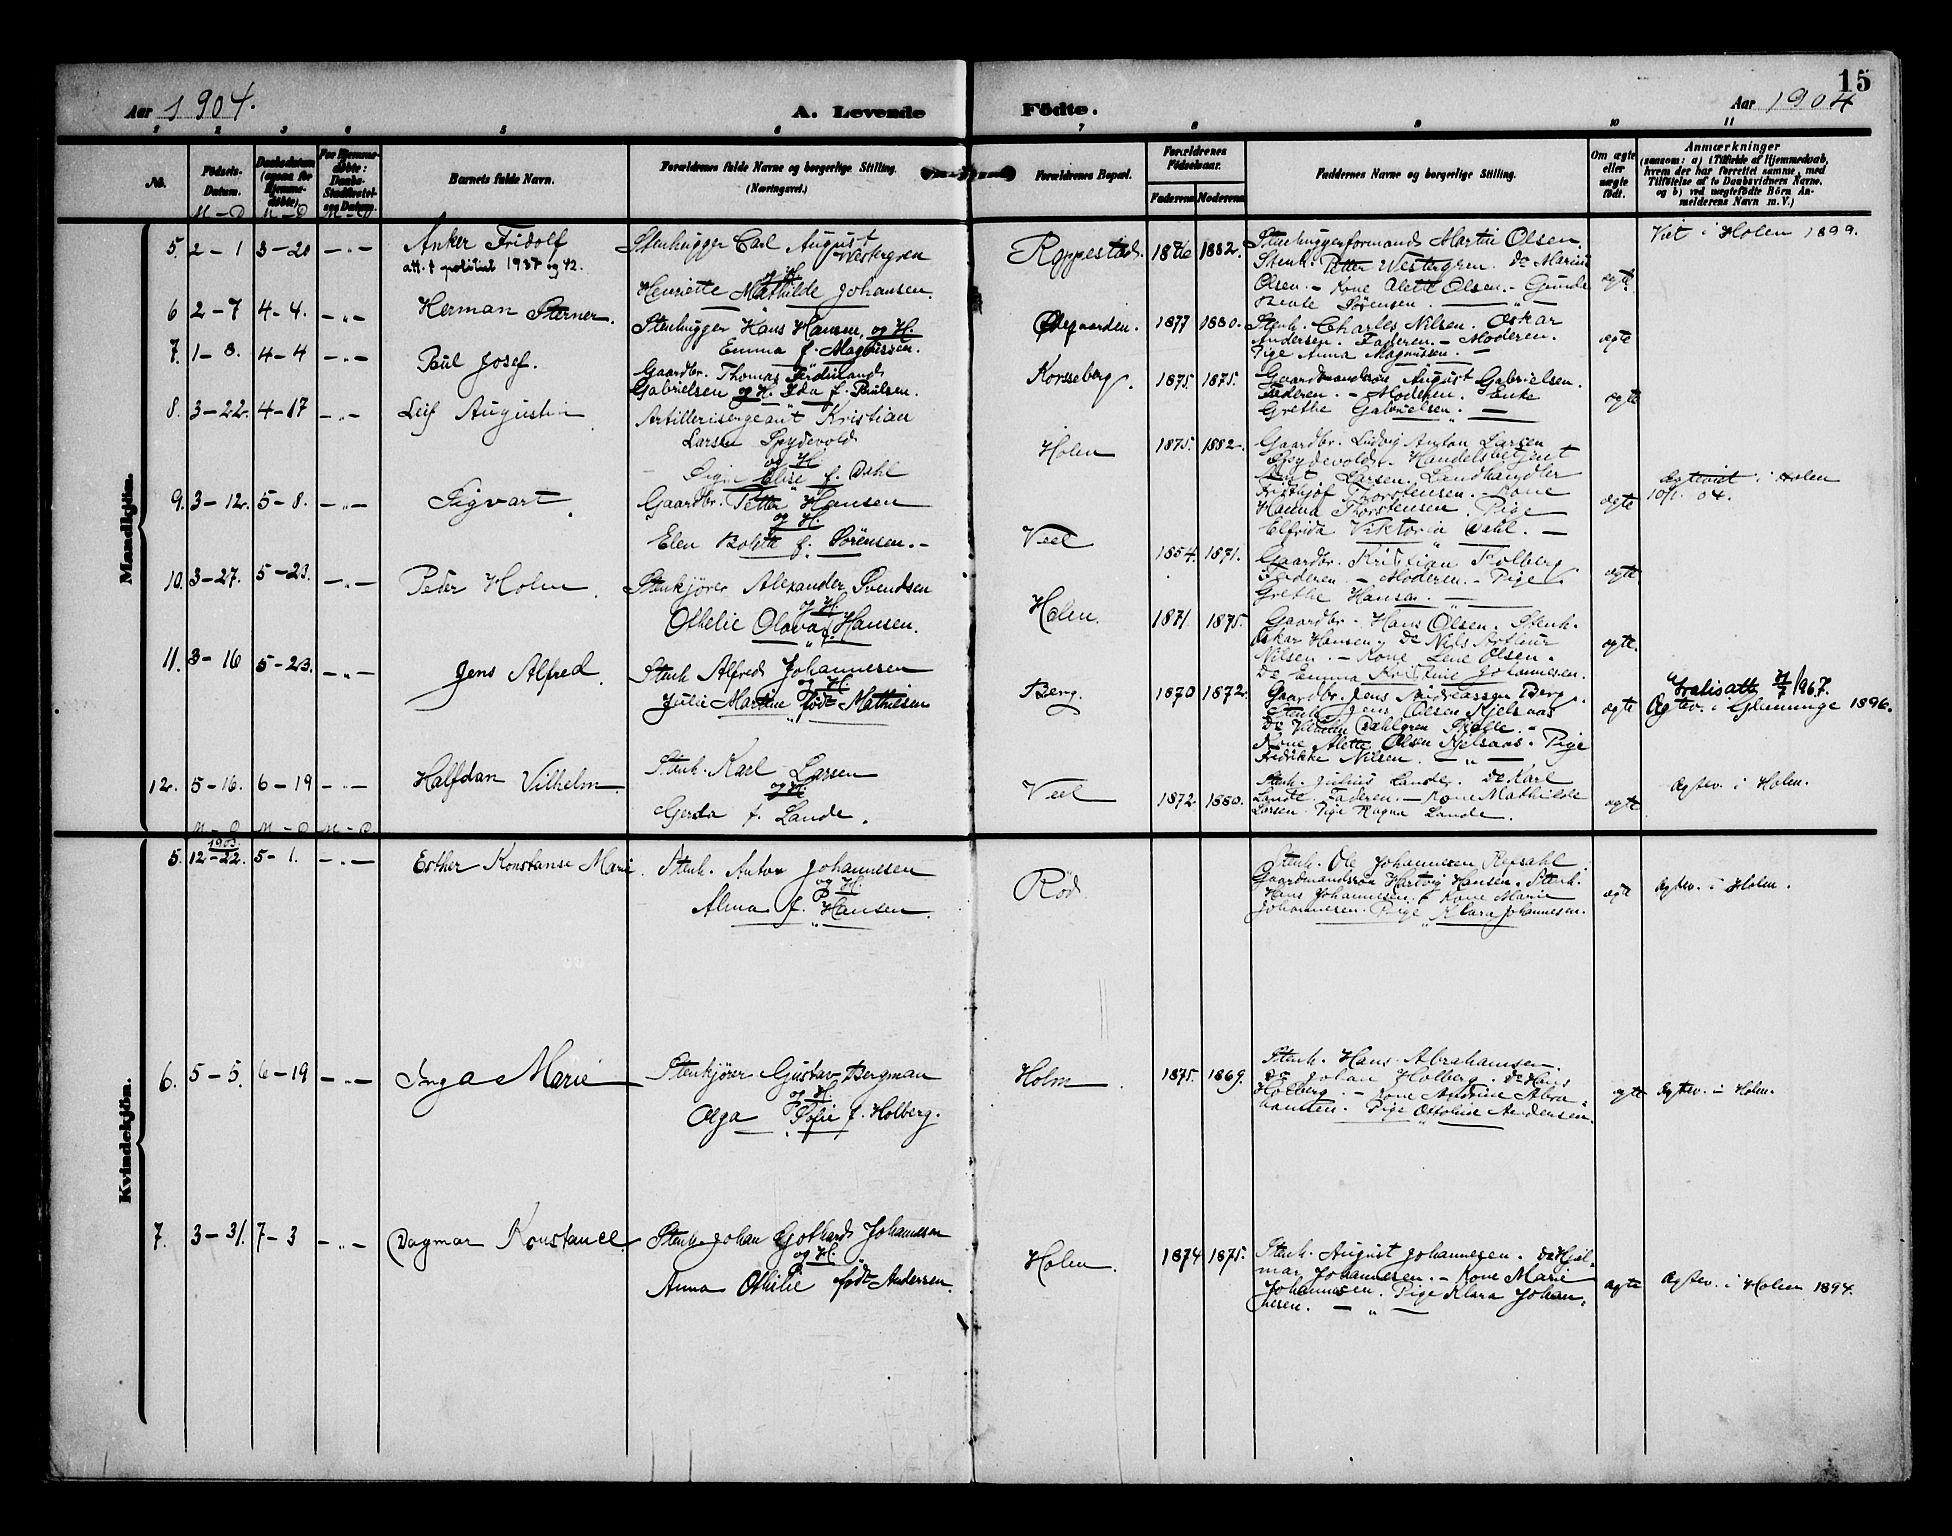 15
Aar 1904.
A. Levende Födte.
Aar 1904
1 2 3 4 5 6 7 8 9 10 11
No.
Födsels-Datum.
Daabsdatum (ogsaa for Hjemme-döbte)
For Hjemme-döbte: Daabs-Stadfæstel-ses Datum.
Barnets fulde Navn.
Forældrenes fulde Navne og borgerlige Stilling.
(Næringsvei.)
Forældrenes Bopæl.
Forældrenes Födselsaar.
Faderens Moderens
Faddernes Navne og borgerlige Stilling.
Om ægte eller uægte födt.
Anmærkninger
(saasom: a) i Tilfælde af Hjemmedaab,
hvem der har forrettet samme, med
Tilföielse af to Daabsvidners Navne,
og b) ved uægtefödte Börn An-
melderens Navn m. V.)
M – D M – D M – D
Mandkjön.
5. 2 – 1 3 – 20 – „ –
Anker Fridolf
att. t politiet 1937 og 42.
Stenhugger Carl August
Westergren
og H.
Henriette Mathilde Johansen.
Roppestad. 1876 1882.
Stenhuggerformand Martin Olsen.
Stenh. Petter Westergren. Do Marius
Olsen. – Kone Alette Olsen. – Gunda
Beate Sørensen. — „ —
ægte.
Viet i Holen 1899.
6 2 – 7 4 – 4. – „ –
Herman Sterner.
Stenhugger Hans Hansen og H.
Emma f. Magnussen.
Ødegaarden. 1877 1880.
Stenh. Charles Nilsen. Oskar
Andersen. Faderen. – Moderen.
Pige Anna Magnussen. –
ægte
7. 1 – 8. 4 – 4 – „ –
Paul Josef.
Gaardbr. Thomas Ferdinand
Gabrielsen og H. Ida f. Paulsen.
Korsseberg. 1875 1875.
Gaardmandssøn August Gabrielsen.
Faderen. – Moderen. Enke
Grethe Gabrielsen. –
ægte
8. 3 – 22. 4 – 17 – „ –
Leif Augustin
Artillerisergeant Kristian
Larsen Spydevold
og H.
Elise f. Dahl
Holen 1875. 1882.
Gaardbr. Ludvig Anton Larsen
Spydevold. Handelsbetjent
Larsen. Landhandler
Fridthjof Thorstensen. – Kone
Hanna Thorstensen. Pige
Elfrida Viktoria Dahl. –
ægte
Ægteviet i Holen
10/1. 04.
9. 3 – 12. 5 – 8. – „ –
Sigvart
Gaardbr. Petter Hansen
og H.
Elen Bolette f. Sørensen. –
Veel 1854. 1871.
Gaardbr. Kristian Kolberg
Faderen – Moderen. – Pige
Grethe Hansen. –
ægte
10. 3 – 27. 5 – 23. – „ –
Peder Holm
Stenkjører Alexander Svendsen
og H.
Othelie Olava f. Hansen.
Holen. 1871. 1875.
Gaardbr. Hans Olsen. Stenh.
Oskar Hansen. Do Nils Arthur
Nilsen. – Kone Lene Olsen.
Do Emma Kristine Johannesen.
ægte.
11. 3 – 16 5 – 23. – „ –
Jens Alfred.
Stenh Alfred Johannesen
og H.
Julie Martine født Mathisen
Berg. 1870 1872.
Gaardbr. Jens Andreassen Berg.
Stenh. Jens Olsen Kjelsaas
Do Vilhelm Dahlgren
Kone Alette Olsen Kjelsaas. Pige
Fredrikke Nilsen. – „ –
ægte
Gratisatt. 21/7 1967.
Ægtev. i Glemminge 1896.
12. 5 – 16. 6 – 19 – „ –
Halfdan Vilhelm.
Stenh. Karl Larsen
og H.
Gerda f. Lande.
Veel 1872 1880.
Stenh. Julius Lande. Do Karl
Lande. Faderen. – Kone Mathilde
Larsen. Pige Ragna Lande.
ægte
Ægtev. i Holen.
M – D M – D M – D
Kvindekjön.
1903.
5. 12 – 22. 5 – 1. – „ –
Esther Konstanse Marie.
Stenh. Anton Johannesen
og H.
Alma f. Hansen.
Röd.
Stenh. Ole Johannesen Repsahl
Gaardmandssøn Hartvig Hansen. Stenh.
Hans Johannesen. Kone Marie
Johannesen. Pige Klara Johannesen.
ægte
Ægtev. i Holen.
6. 5 – 5. 6 – 19 – „ –
Inga Marie
Stenkjører Gustav Bergman
og H
Olga Sofie f. Holberg.
Holm. 1875. 1869.
Stenh. Hans Abrahamsen.
Do Johan Holberg. Do Hans
Holberg. – Kone Andrine Abra-
hamsen. Pige Ottoline Andersen.
ægte
Ægtev. i Holen.
7. 3 – 31. 7 – 3 – „ –
Dagmar Konstance.
Stenh. Johan Gothard Johannesen
og H.
Anna Othilie født Andersen.
Holen. 1874 1875.
Stenh. August Johannesen. Do Hjal-
mar Johannesen. – Kone Marie
Johannesen. Pige Klara Johan-
nesen. – „ –
ægte
Ægtev. i Holen 1894.